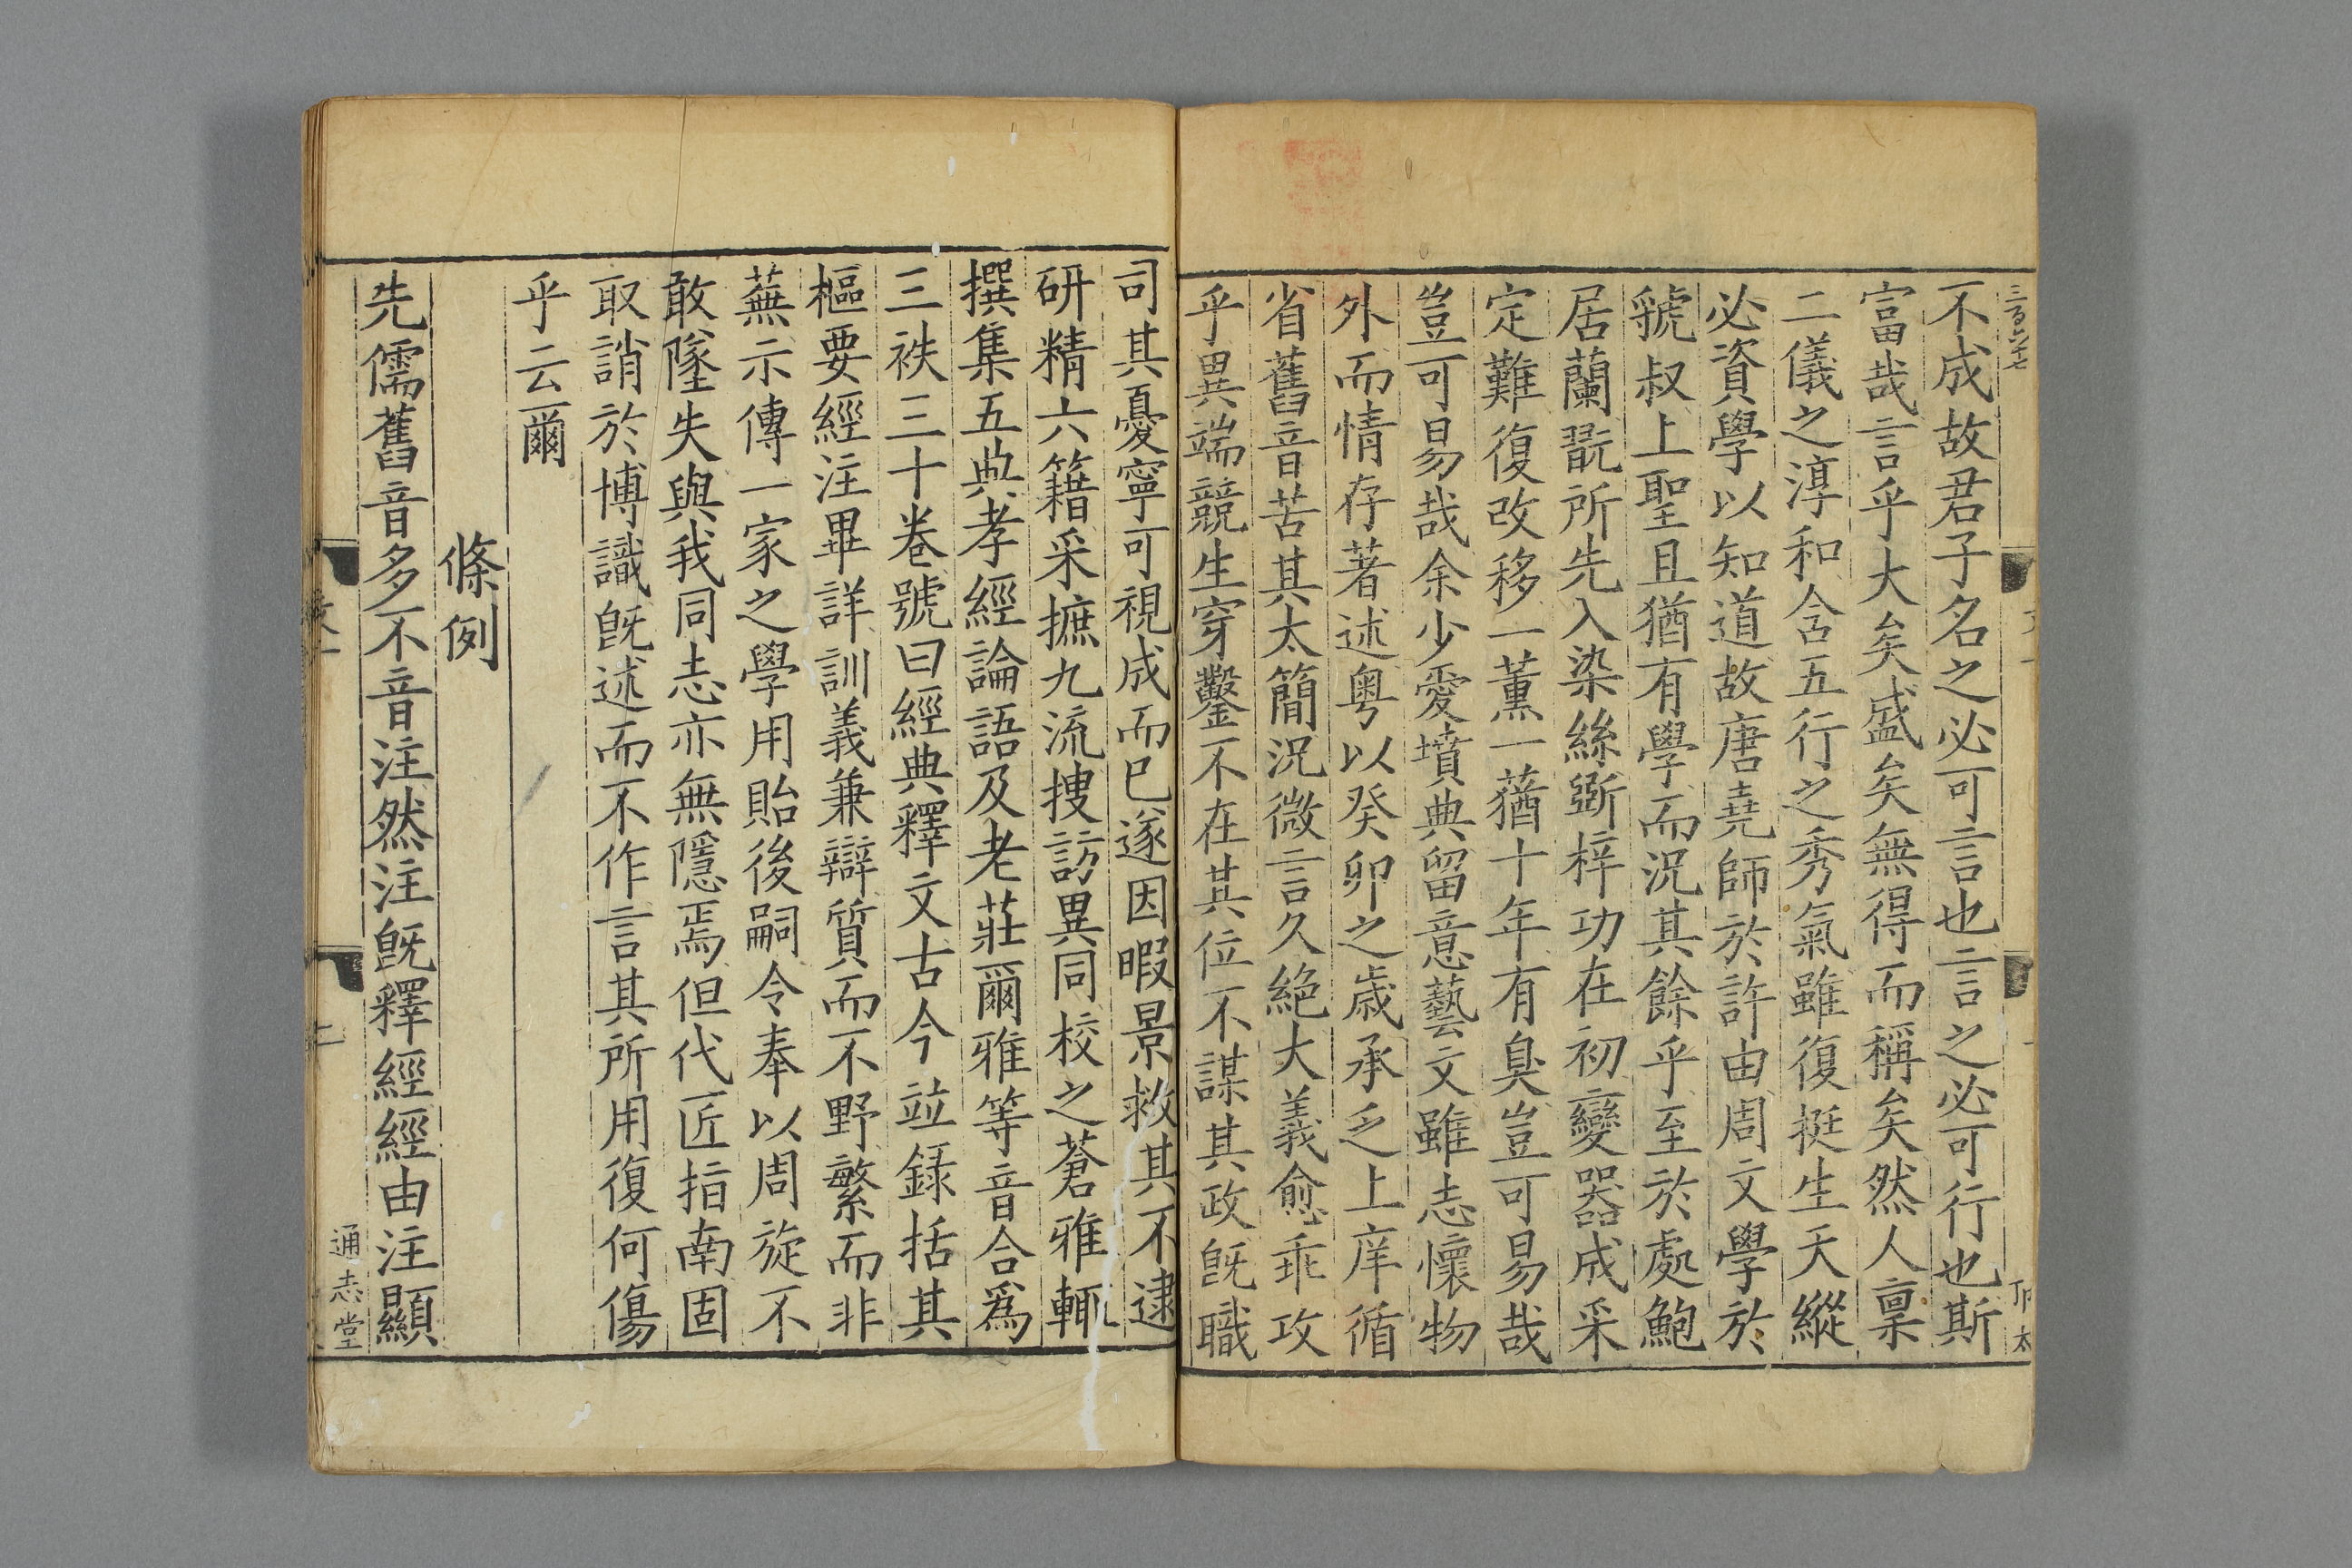 三百六十七
不成故君子名之必可言也言之必可行也斯
富哉言乎大矣盛矣無得而稱矣然人稟
二儀之淳和含五行之秀氣雖復挺生天縱
必資學以知道故唐堯師於許由周文學於
虢叔上聖且猶有學而況其餘乎至於處鮑
居蘭翫所先入染絲斲梓功在初變器成采
定難復改移一薰一蕕十年有臭豈可易哉
豈可易哉余少愛墳典留意藝文雖志懷物
外而情存著述粵以癸卯之歲承乏上庠循
省舊音苦其太簡況微言久絕大義愈乖攻
乎異端競生穿鑿不在其位不謀其政旣職
司其憂寧可視成而已遂因暇景救其不逮
研精六籍采摭九流搜訪異同校之蒼雅輒
撰集五典孝經論語及老莊爾雅等音合爲
三袟三十卷號曰經典釋文古今竝録括其
樞要經注畢詳訓義兼辯質而不野繁而非
蕪示傳一家之學用貽後嗣令奉以周旋不
敢墜失與我同志亦無隱焉但代匠指南固
取誚於博識旣述而不作言其所用復何傷
乎云爾
條例
先儒舊音多不音注然注旣釋經經由注顯
二
通志堂